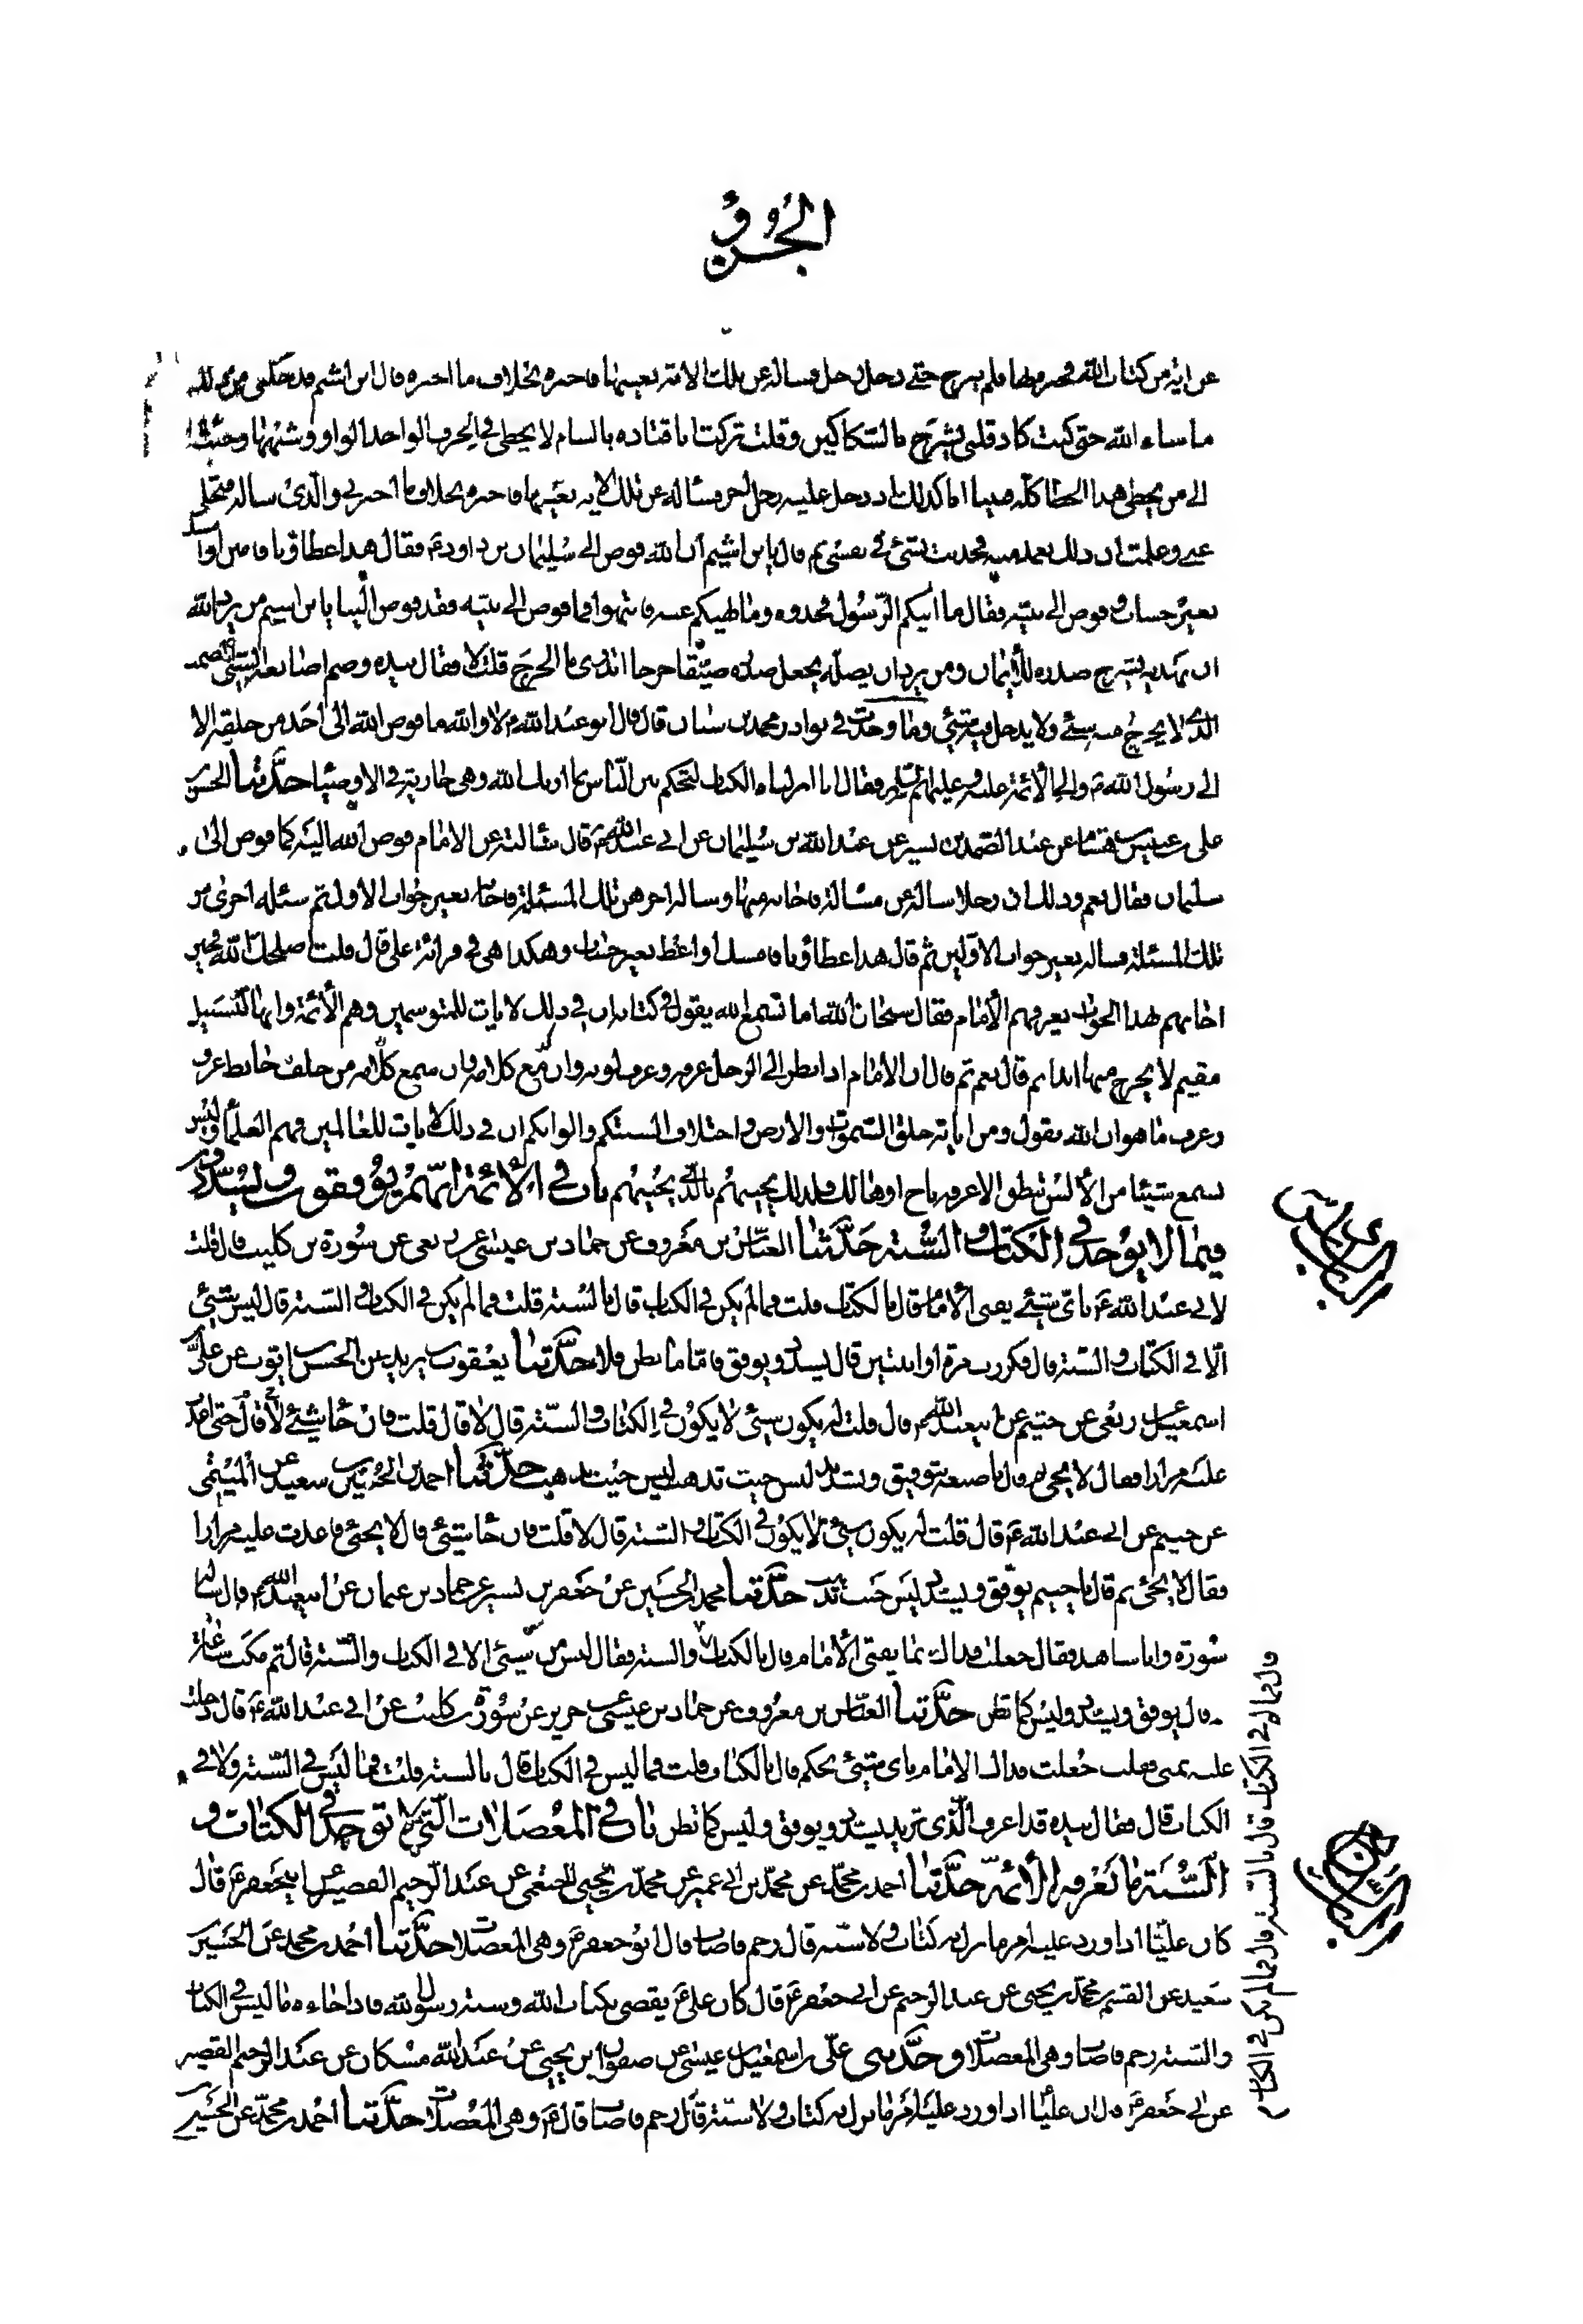 الجزؤ
عن اية من كتاب الله فخبره بها فلم يبرح حتى دخل رجل فساله عن تلك الاية بعينها فاخبره بخلاف ما اخبره قال ابن اشيم فدخلنى من ذلك
ما شاء الله حتى كنت كاد قلبى يشرح بالسكاكين وقلت تركت ابا قتاده بالشام لا يخطى فى الحرف الواحد الواو وشبهها وجئت
الى من يخطى هذا الخطا كله فبينا انا كذلك اذ دخل عليه رجل اخر فساله عن تلك الاية بعينها فاخبره بخلاف ما اخبرنى والذى ساله فتجلى
عنى وعلمت ان ذلك تعمد منه فحدثت بشئ فى نفسى ثم قال يا بن اشيم ان الله فوض الى سليمان بن داود ع فقال هذا عطاؤنا فامنن او امسك
بغير حساب وفوض الى نبيه فقال ما اتيكم الرسول فخذوه وما نهيكم عنه فانتهوا فما فوض الى نبيه فقد فوض الينا يا بن اشيم من يرد الله
ان يهديه يشرح صدره للايمان ومن يرد ان يضله يجعل صدره ضيقا حرجا اتدرى ما الحرج قلت لا فقال بيده وضم اصابعه الشئ المصمت
الذى لا يخرج منه شئ ولا يدخل فيه شئ وما وجدت فى نوادر محمد بن سنان قال قال ابو عبد الله ع لا والله ما فوض الله الى احد من خلقه الا
الى رسول الله ص والى الائمة عليه وعليهم السلم فقال انا انزلنا اليك الكتاب لتحكم بين الناس بما اريك الله وهى جارية فى الاوصيا حدثنا الحسن
على بن عبيس بن هشام عن عبد الصمد بن بشير عن عبد الله بن سليمان عن ابى عبد الله ع قال سالته عن الامام فوض الله اليه كما فوض الى
سليمان فقال نعم وذلك ان رجلا ساله عن مسالة فاجابه فيها وساله اخر عن تلك المسئلة فاجابه بغير جواب الاول ثم سئله اخرى عن
تلك المسئلة فساله بغير جواب الاولين ثم قال هذا عطاؤنا فامسك او اعط بغير حساب وهكذا هى فى قرائة على قال قلت اصلحك الله فحين
اجابهم بهذا الجواب يعرفهم الامام فقال سبحان الله اما تسمع الله يقول فى كتابه ان فى ذلك لايات للمتوسمين وهم الائمة وانها لبسبيل
مقيم لا يخرج منها ابدا ثم قال نعم ثم قال ان الامام اذا نظر الى الرجل عرفه وعرف لونه وان سمع كلامه وان سمع كلامه من خلف حايط عرفه
وعرف ما هو ان الله يقول ومن اياته خلق السموات والارض واختلاف السنتكم والوانكم ان فى ذلك لايات للعالمين فهم العلما وليس
يسمع شيئا من الالسن تنطق الا عرفه ناج او هالك فلذلك يجيبهم بالذى يجيبهم باب فى الائمة انهم يوفقون ويسددون
فيما لا يوجد فى الكتاب و السنة حدثنا العباس بن معروف عن حماد بن عيسى عن ربعى عن سورة بن كليب قال قلت
لابى عبد الله ع باى شئ يفتى الامام قال بالكتاب قلت فما لم يكن فى الكتاب قال بالسنة قلت فما لم يكن فى الكتاب و السنة قال ليس شئ
الا فى الكتاب و السنة قال فكررت مرة او اثنتين قال يسدد ويوفق فاما ما تظن فلا حدثنا يعقوب بن يزيد عن الحسن بن ايوب عن على بن
اسمعيل عن ربعى عن خثيم عن ابى عبد الله ع قال قلت له يكون شئ لا يكون فى الكتاب و السنة قال لا قال قلت فان جا شئ قال لا حتى اعدت
عليه مرارا فقال لا يجئ ثم قال باصبعه بتوفيق وتسديد ليس حيث تذهب ليس حيث تذهب حدثنا احمد بن الحسين بن سعيد عن الميثمى
عن خثيم عن ابى عبد الله ع قال قلت له يكون شئ لا يكون فى الكتاب و السنة قال لا قلت فان جا شئ قال لا يجئ فاعدت عليه مرارا
فقال لا يجئ ثم قال يا خثيم يوفق ويسدد ليس حيث تذهب حدثنا محمد بن الحسين عن جعفر بن بشير عن حماد بن عثمان عن ابى عبد الله ع قال ساله
سورة وانا شاهد فقال جعلت فداك بما يفتى الامام قال بالكتاب والسنة فقال ليس من شئ الا فى الكتاب والسنة قال ثم مكث ساعة
قال يوفق ويسدد وليس كما تظن حدثنا العباس بن معروف عن حماد بن عيسى عن حريز عن سورة بن كليب عن ابى عبد الله ع قال دخلت
عليه بمنى فقلت جعلت فداك الامام باى شئ يحكم قال بالكتاب قلت فما ليس فى الكتاب قال بالسنة قلت فما ليس فى السنة ولا فى
الكتاب قال فقال بيده قد اعرف الذى تريد يسدد ويوفق وليس كما تظن باب فى المعضلات التى لا توجد فى الكتاب و
السنة ما تعرفه الائمة حدثنا احمد بن محمد عن محمد بن ابى عمير عن محمد بن يحيى الخثعمى عن عبد الرحيم القصير عن ابى جعفر ع قال
كان على ع اذا ورد عليه امر ما نزل به كتاب و لا سنة قال رجم فاصاب قال ابو جعفر ع وهى المعضلات حدثنا احمد بن محمد عن الحسين بن
سعيد عن القسم بن محمد بن يحيى عن عبد الرحيم عن ابى جعفر ع قال كان على ع يقضى بكتاب الله وسنة رسول الله فاذا جاءه ما ليس فى الكتاب
والسنة رجم فاصاب وهى المعضلات وحدثنى على بن اسمعيل بن عيسى عن صفوان بن يحيى عن عبد الله بن مسكان عن عبد الرحيم القصير
عن ابى جعفر ع قال ان عليا اذا ورد عليه امر ما نزل به كتاب ولا سنة قال رجم فاصاب قال ع وهى المعضلات حدثنا احمد بن محمد عن الحسين بن
قال بالسنة قال فما لم يكن فى الكتاب